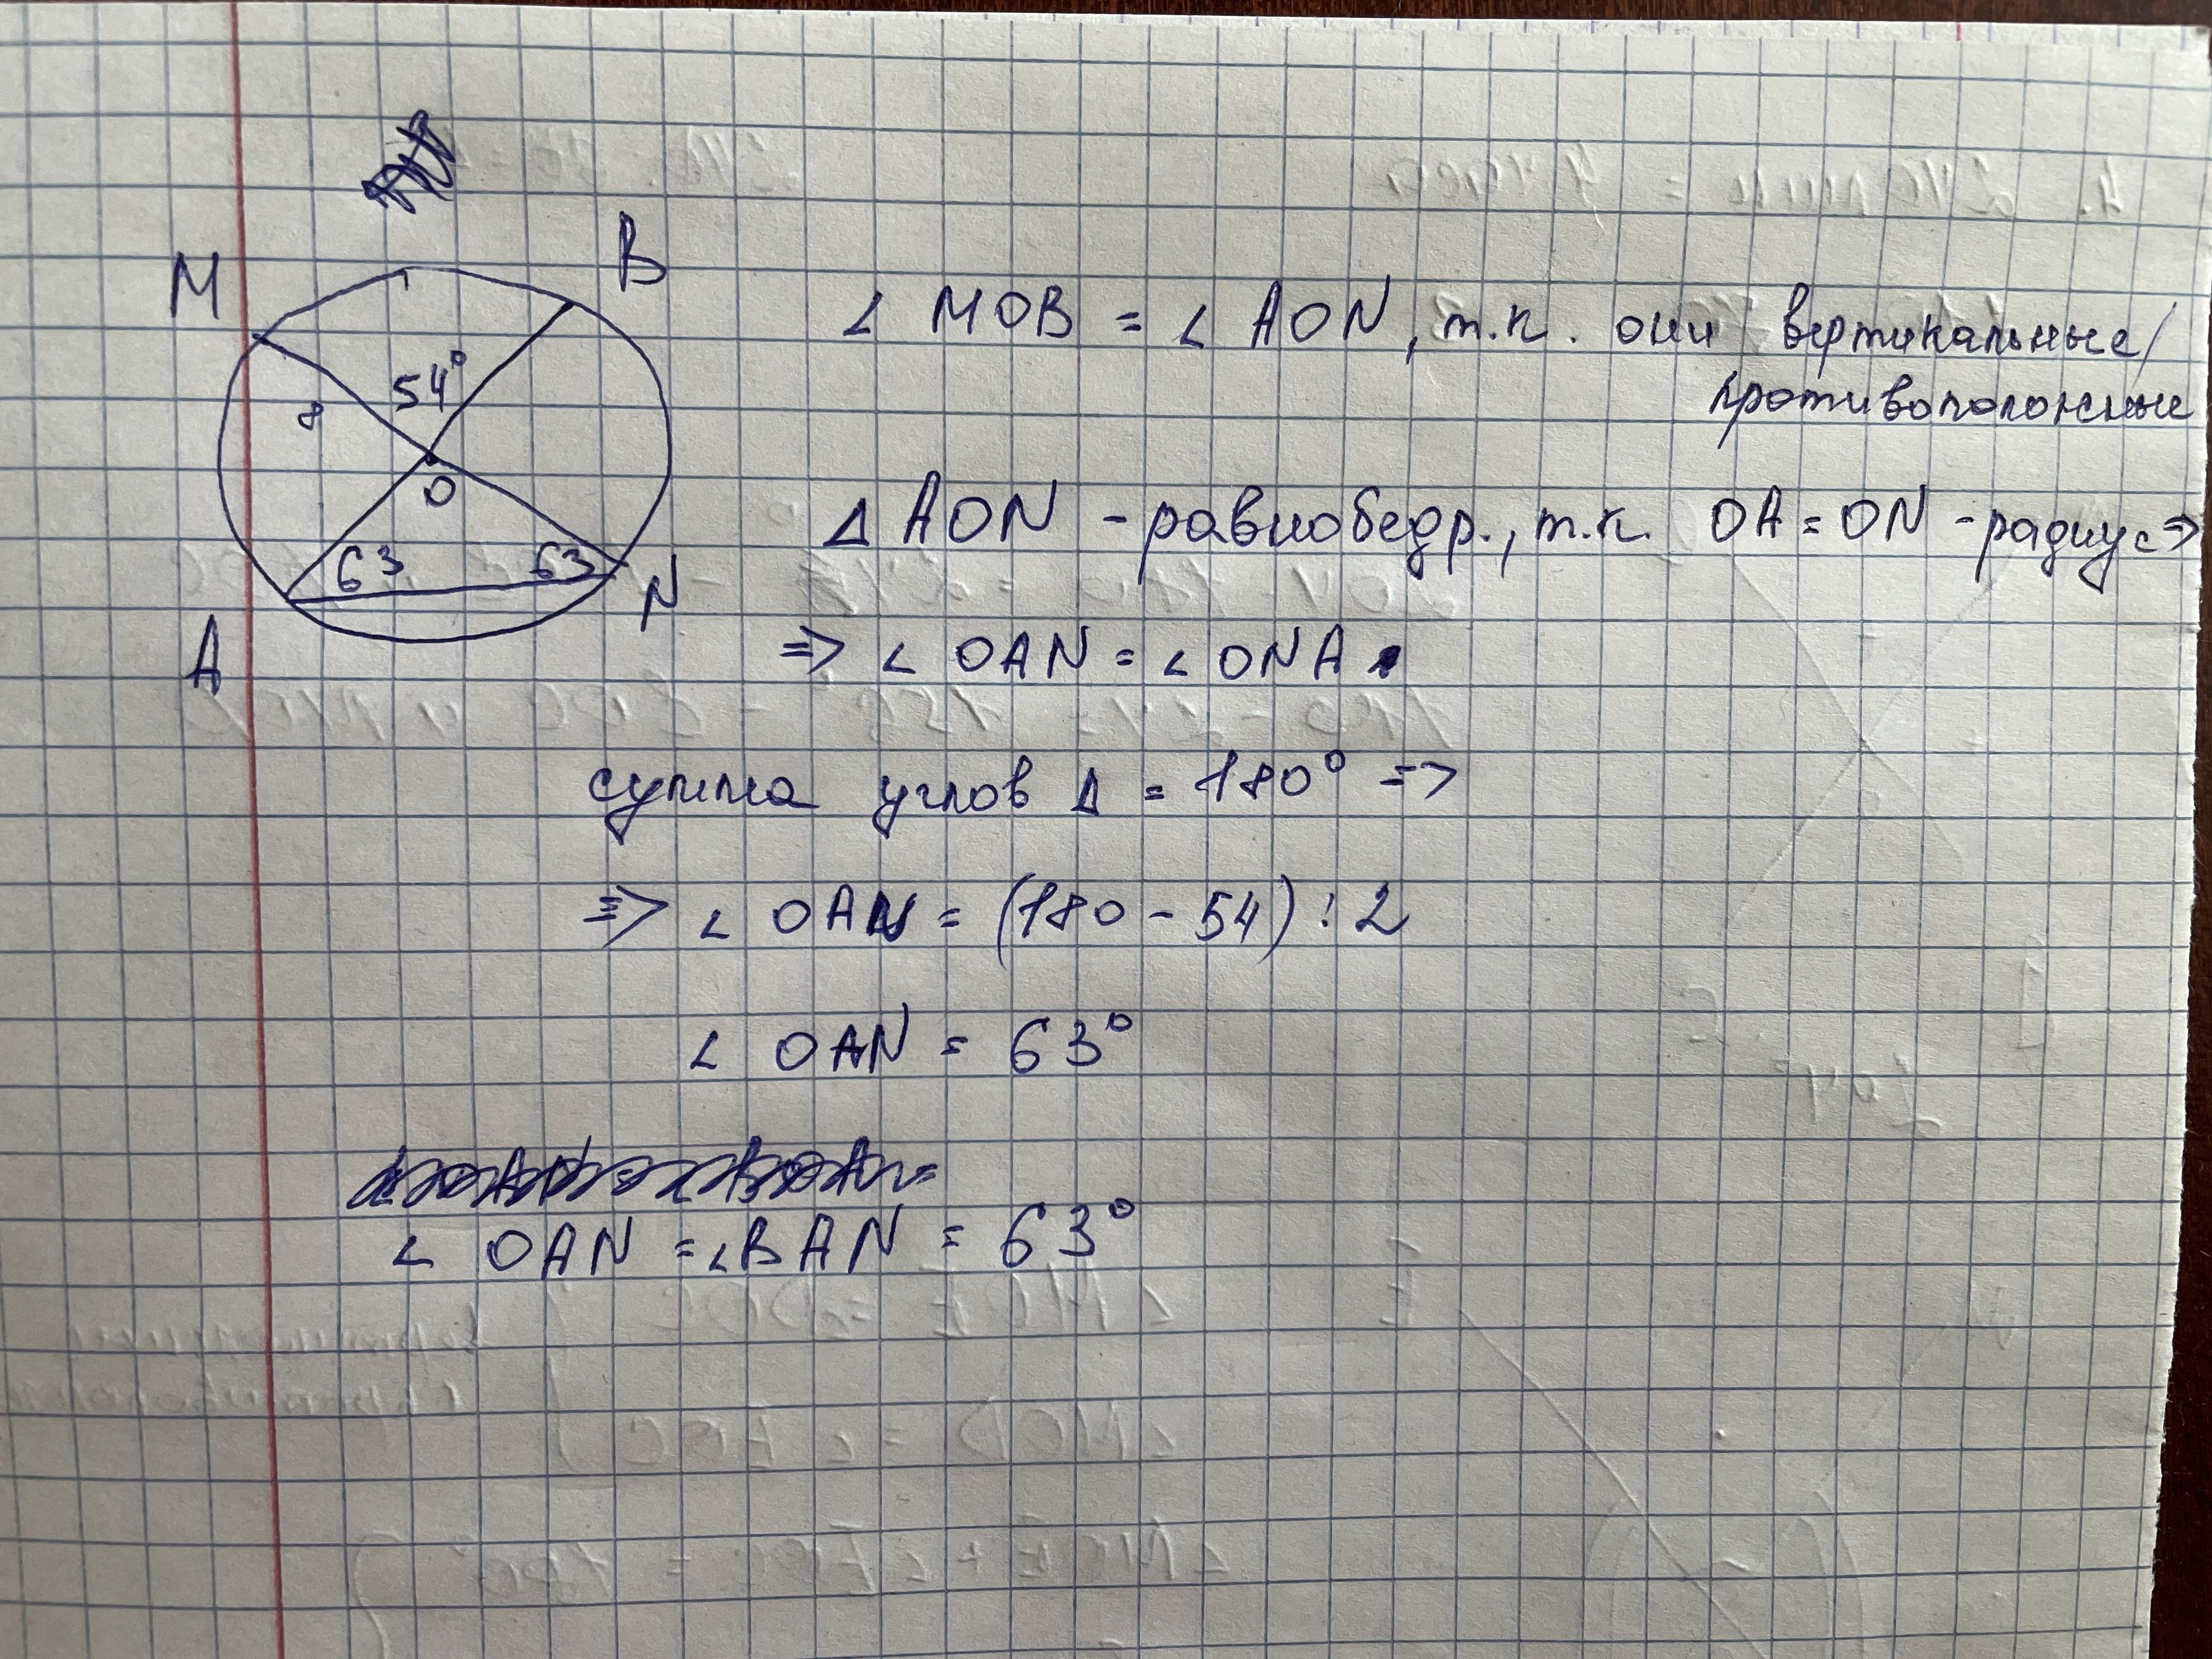 M
B
54°
8
O
63
63
N
A
∠ MOB = ∠ AON, т.к. они вертикальные/
противоположные
Δ AON - равнобедр., т.к. OA = ON - радиус ⇒
⇒ ∠ OAN = ∠ ONA
сумма углов Δ = 180° ⇒
⇒ ∠ OAN = (180 - 54) : 2
∠ OAN = 63°
∠ OAN = ∠BAN = 63°